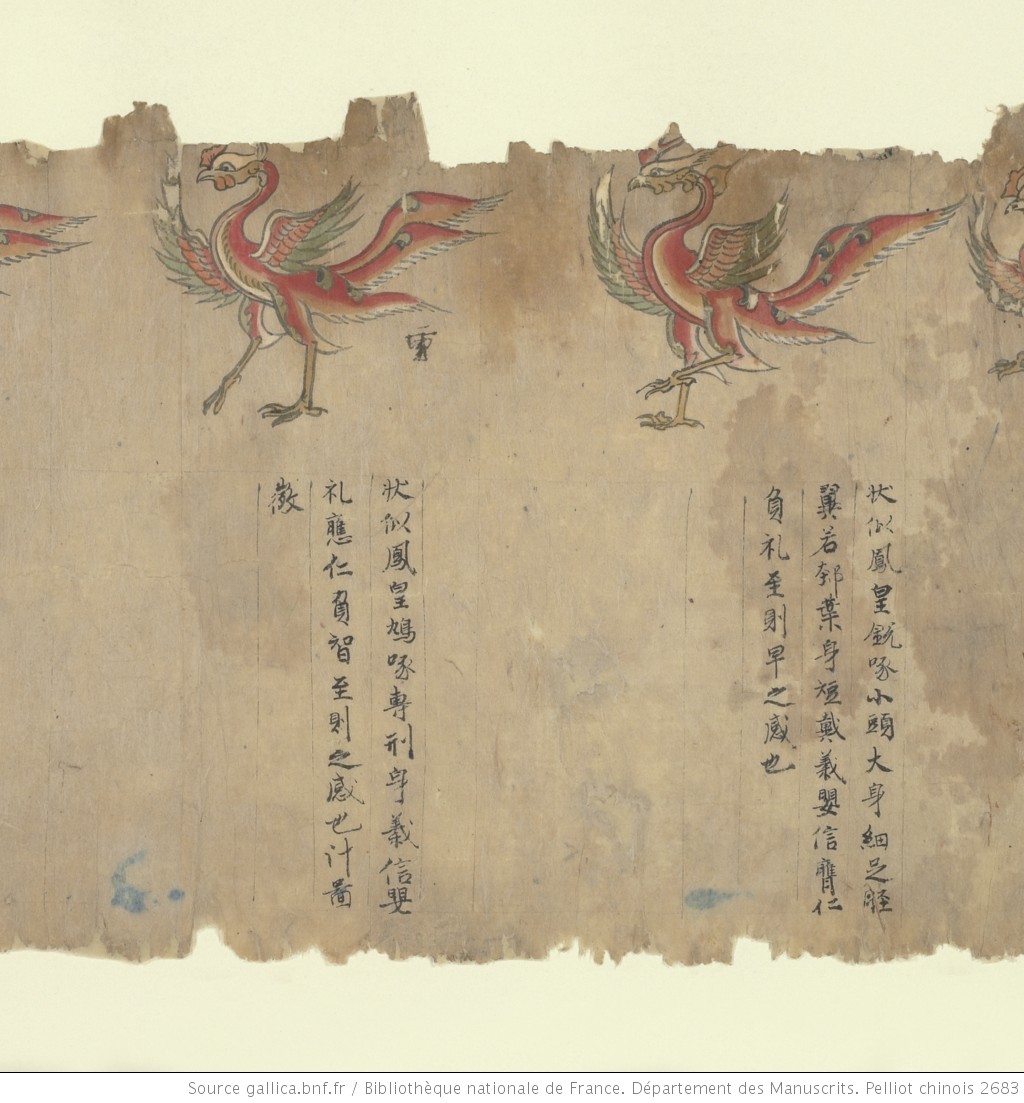 状似鳳皇銳啄小頭大身細足胫
翼若郣葉身短戴義嬰信膺仁
負礼至則旱之感也
状似鳳皇鳩啄專刑身義信嬰
礼應仁負智至則之感也计啚
徴
Source gallica.bnf.fr / Bibliothèque nationale de France. Département des Manuscrits. Pelliot chinois 2683